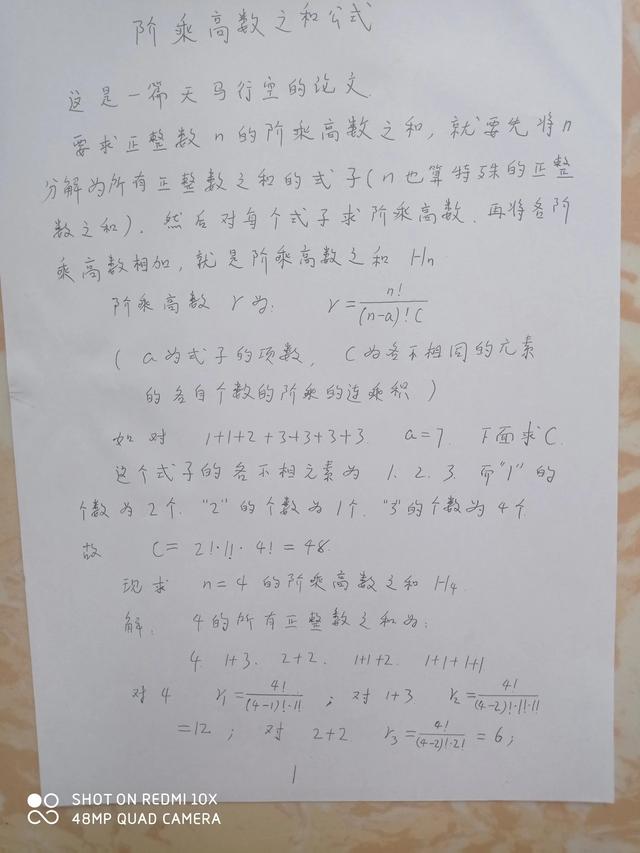 阶乘高数之和公式
这是一篇天马行空的论文.
要求正整数n的阶乘高数之和,就要先将n
分解为所有正整数之和的式子(n也算特殊的正整
数之和).然后对每个式子求阶乘高数.再将各阶
乘高数相加,就是阶乘高数之和 Hn
阶乘高数 r 为: r = n!/((n-a)!C)
( a为式子的项数, C为各不相同的元素
的各自个数的阶乘的连乘积 )
如对 1+1+2+3+3+3+3. a=7. 下面求C.
这个式子的各不相元素为 1. 2. 3. 而"1"的
个数为2个. "2"的个数为1个. "3"的个数为4个
故 C= 2!·1!·4! = 48.
现求 n=4 的阶乘高数之和 H4.
解: 4的所有正整数之和为:
4. 1+3. 2+2. 1+1+2. 1+1+1+1
对4 r1 = 4!/((4-1)!·1!) ; 对1+3 r2 = 4!/((4-2)!·1!·1!)
=12 ; 对 2+2 r3 = 4!/((4-2)!·2!) = 6 ;
1
SHOT ON REDMI 10X
48MP QUAD CAMERA